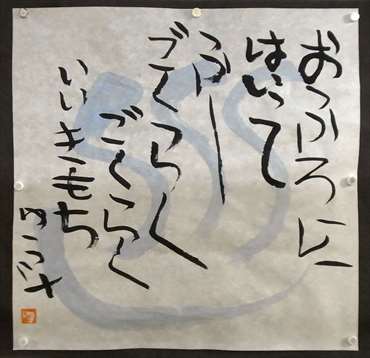 おふろに
はいって
ふー
ごくらく
ごくらく
いいきもち